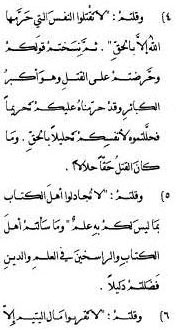 ٤) وقلتم: "لا تقتلوا النفس التي حرّمها
الله إلا بالحق". ثم نسختم قولكم
وحرّضتم على القتل وهو أكبر
الكبائر وقد حرّمناه عليكم تحريماً
فحلّلتموه لأنفسكم تحليلاً بالحق. وما
كان القتل حقّاً حلالاً.
٥) وقلتم: "لا تجادلوا أهل الكتاب
بما ليس لكم به علم" وما سألتم أهل
الكتاب والراسخين في العلم والدين
فضللتم دليلاً.
٦) وقلتم: "لا تقربوا مال اليتيم إلاّ